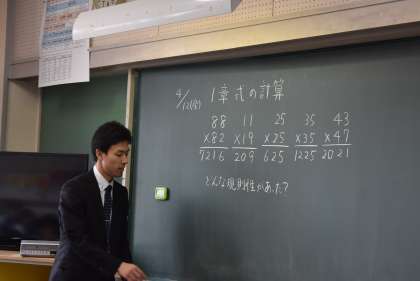 4/12(金) 1章 式の計算
88 11 25 35 43
×82 ×19 ×25 ×35 ×47
7216 209 625 1225 2021
どんな規則性があった?